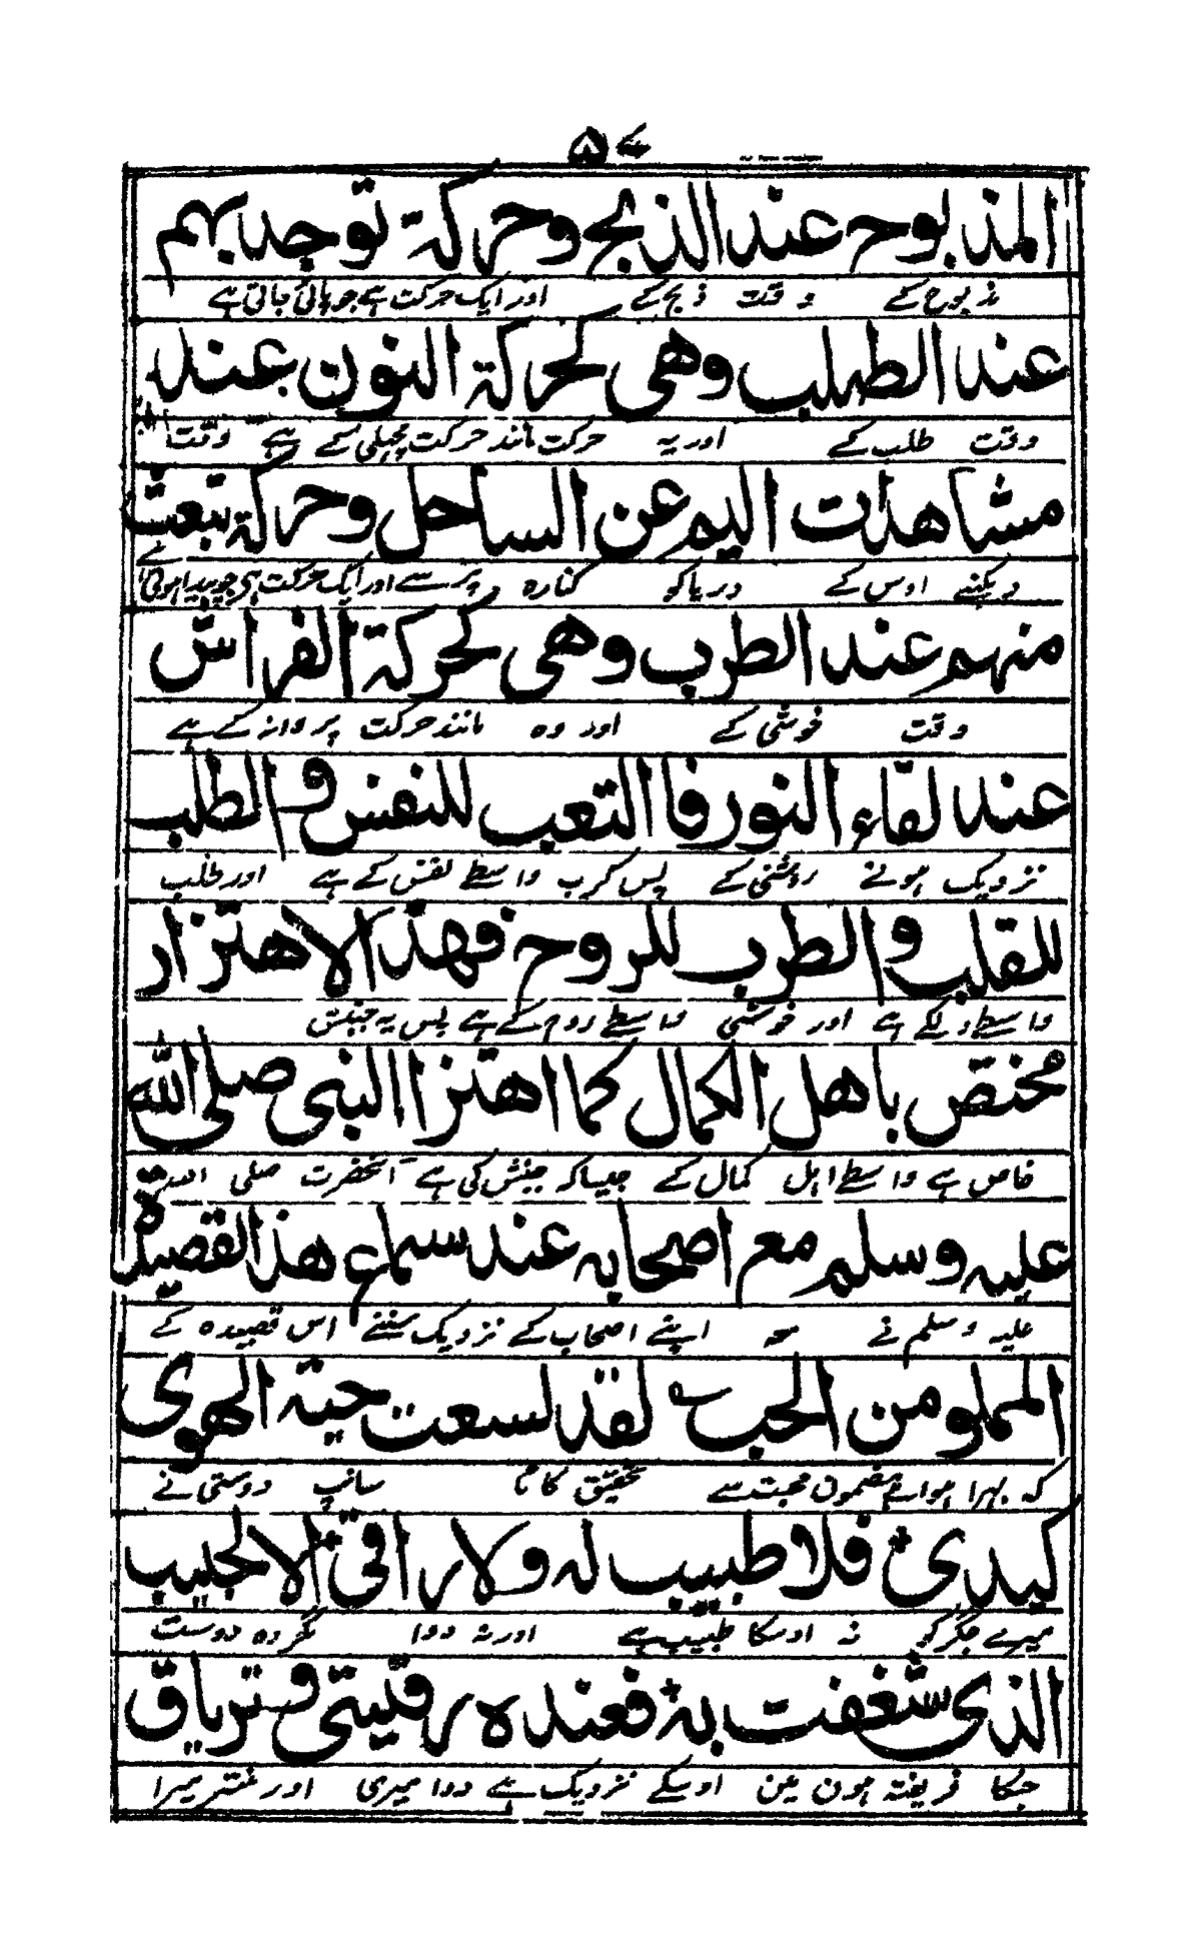 ٨
المذبوح عند الذبح وحركة توجد بهم
مذبوح کے وقت ذبح کے اور ایک حرکت ہے جو پائی جاتی ہے
عند الطلب وهى كحركة النون عند
وقت طلب کے اور یہ حرکت مانند حرکت مچھلی کے ہے وقت
مشاهدات اليم عن الساحل وحركة تبعث
دیکھنے اوس کے دریا کو کنارہ پر سے اور ایک حرکت ہی جو پیدا ہوتی ہے
منهم عند الطرب وهى كحركة الفراش
وقت خوشی کے اور وہ مانند حرکت پروانہ کے ہے
عند لقاء النور فا التعب للنفس و الطلب
نزدیک ہونے روشنی کے پس کرب واسطے نفس کے ہے اور طلب
للقلب و الطرب للروح فهذ الاهتزار
واسطے دلکے ہے اور خوشی واسطے روح کے ہے پس یہ جنبش
مختص باهل الكمال كما اهتزا النبى صلى الله
خاص ہے واسطے اہل کمال کے جیسا کہ جنبش کی ہے آنحضرت صلی اللہ
عليه وسلم مع اصحابه عند سماع هذ القصيدة
علیہ وسلم نے معہ اپنے اصحاب کے نزدیک سننے اس قصیدہ کے
المملو من الحب لقد لسعت حية الهوى
کہ بہرا ہوا ہے مضمون محبت سے تحقیق کاٹا سانپ دوستی نے
كبدى فلا طبيب له ولا راقى الا لجبيب
میرے جگر کو نہ اوسکا طبیب ہے اور نہ دوا مگر وہ دوست
الذى شغفت به فعنده رقيتى و ترياق
جسکا فریفتہ ہون مین اوسکے نزدیک ہے دوا میری اور منتر میرا